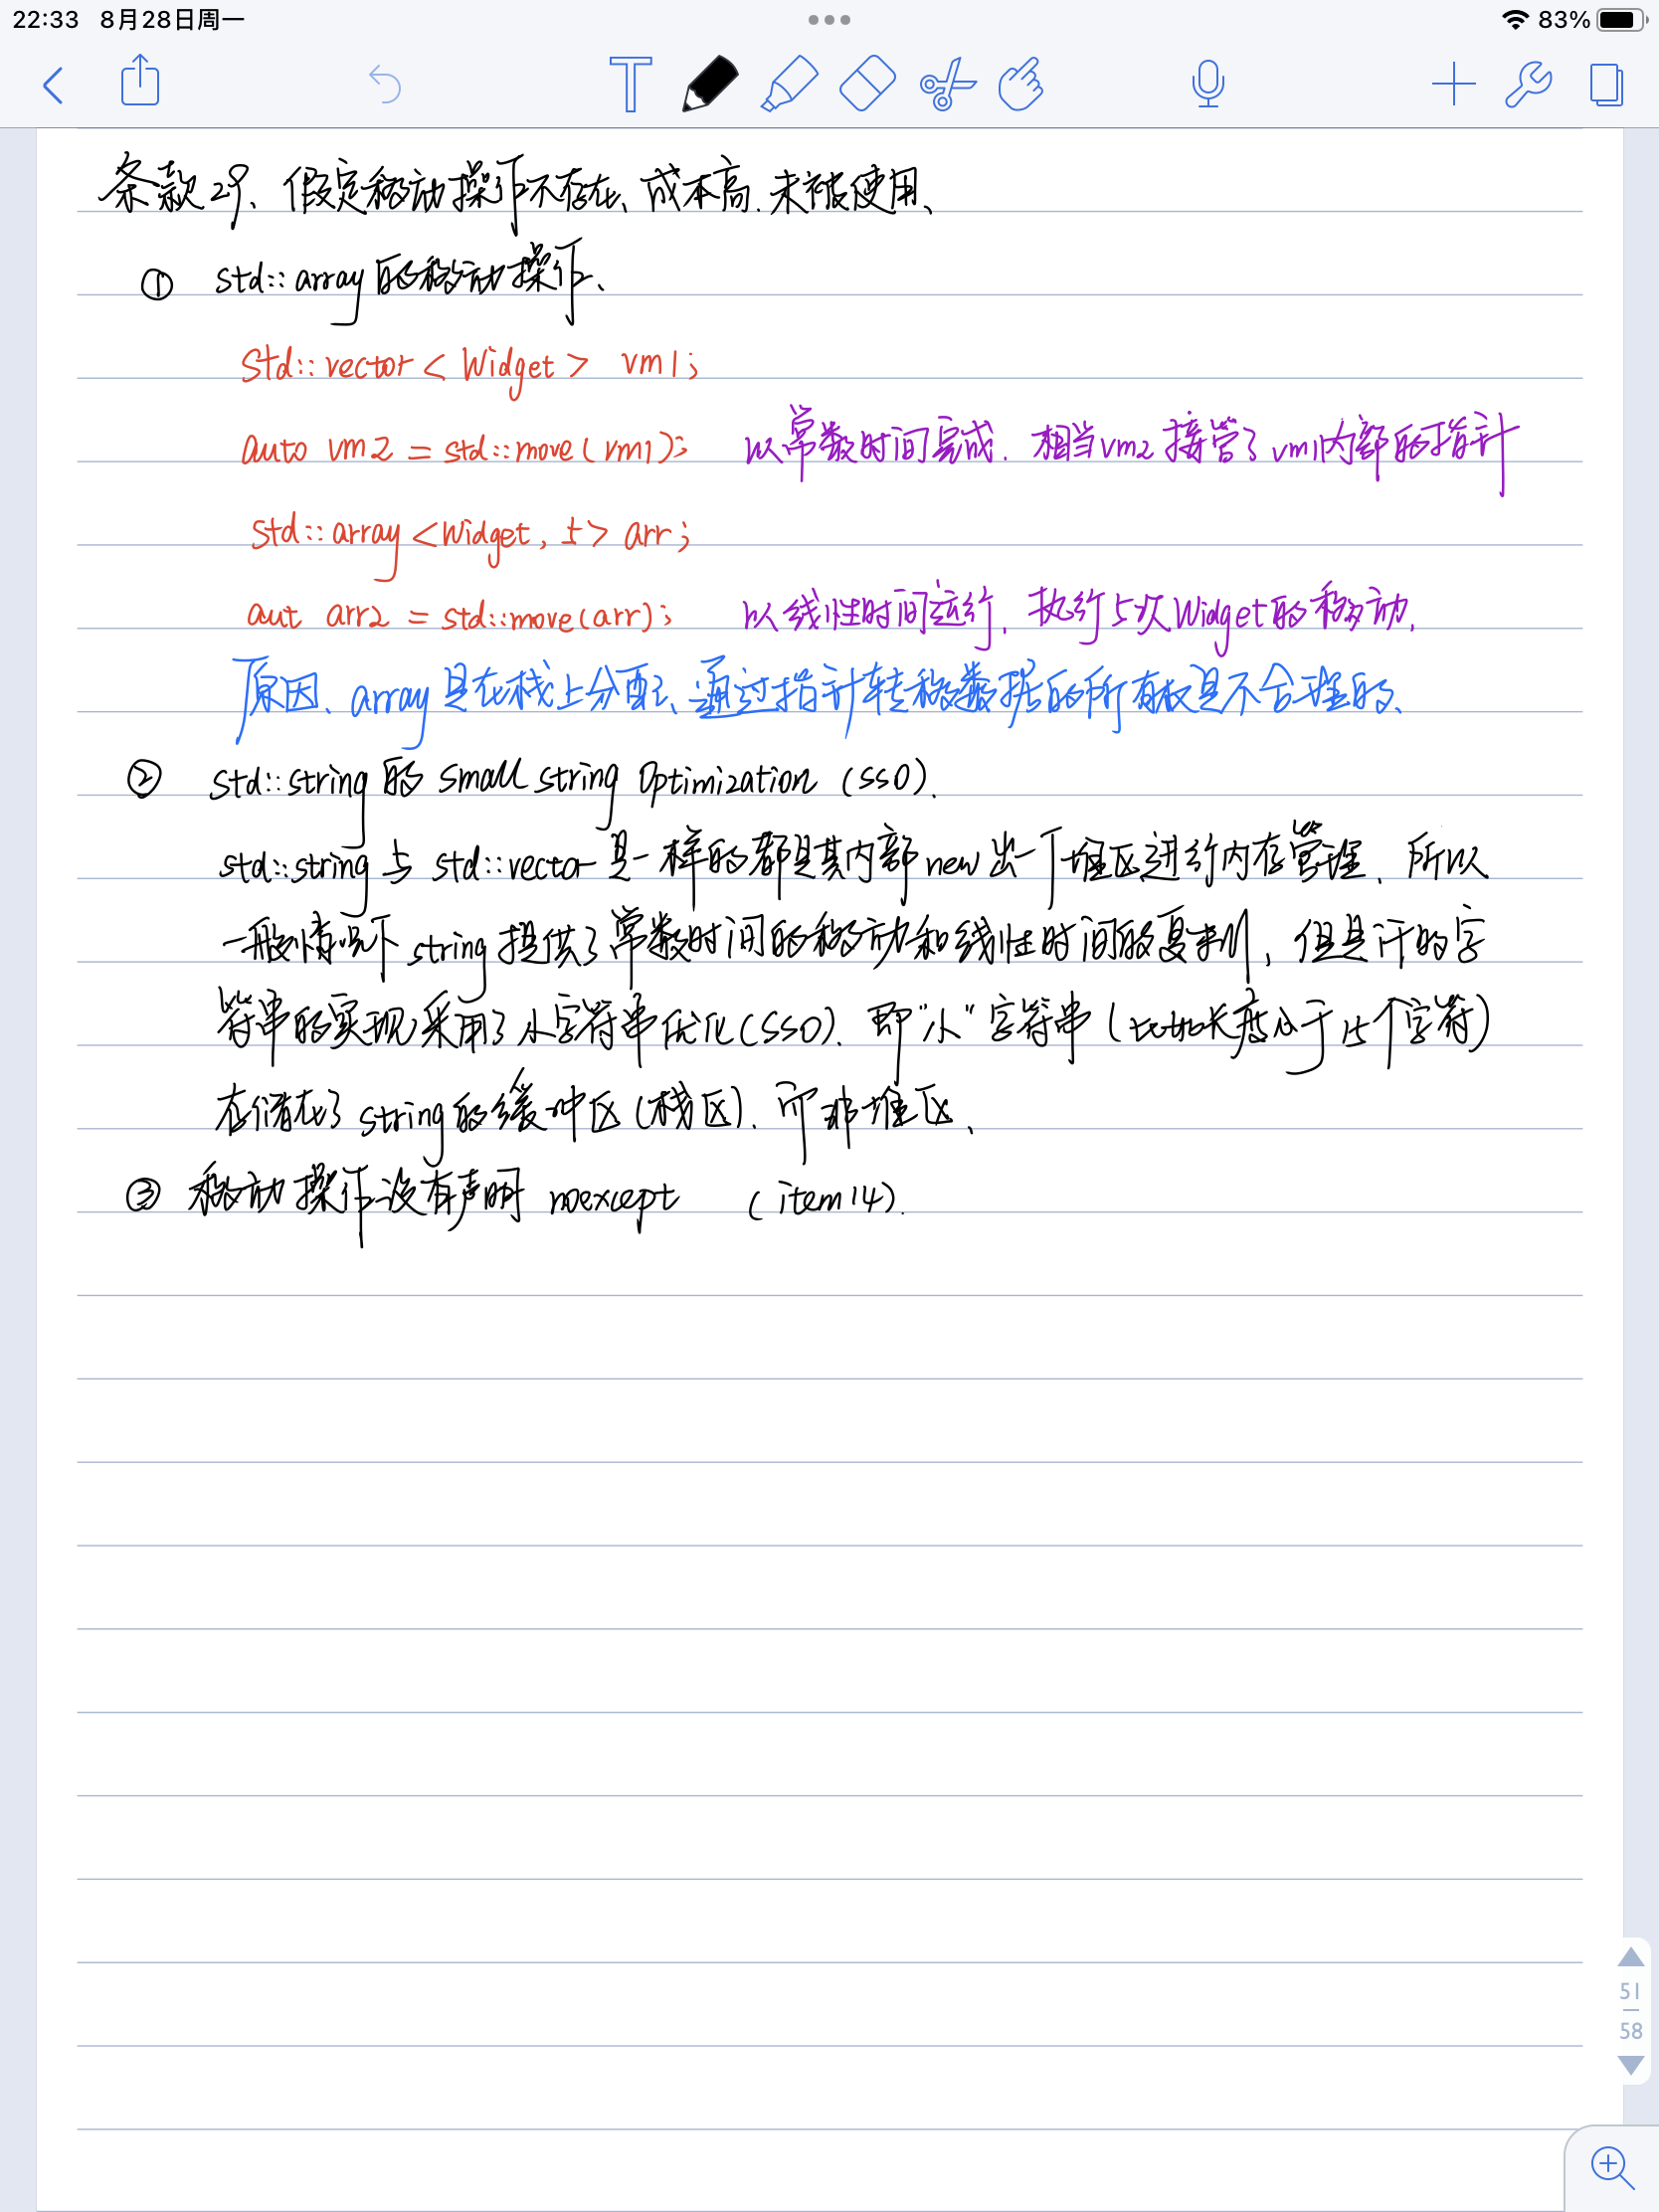 22:33 8月28日周一
83%
条款29、假定移动操作不存在、成本高.未被使用、
① std::array 的移动操作、
std::vector < Widget > vm1;
auto vm2 = std::move(vm1); 以常数时间完成. 相当vm2 接管了 vm1内部的指针
std::array <Widget, 5> arr;
aut arr2 = std::move(arr); 以线性时间运行, 执行5次Widget的移动,
原因、array 是在栈上分配、通过指针转移数据的所有权是不合理的、
② std::string 的 small string Optimization (SSO).
std::string 与 std::vector 是一样的都是其内部 new 出一个堆区进行内存管理. 所以
一般情况下 string 提供了常数时间的移动和线性时间的复制, 但是许的字
符串的实现采用了小字符串优化(SSO). 即"小"字符串 (比如长度小于15个字符)
存储在了 string 的缓冲区(栈区). 而非堆区、
③ 移动操作没有声明 noexcept (item14).
51
58